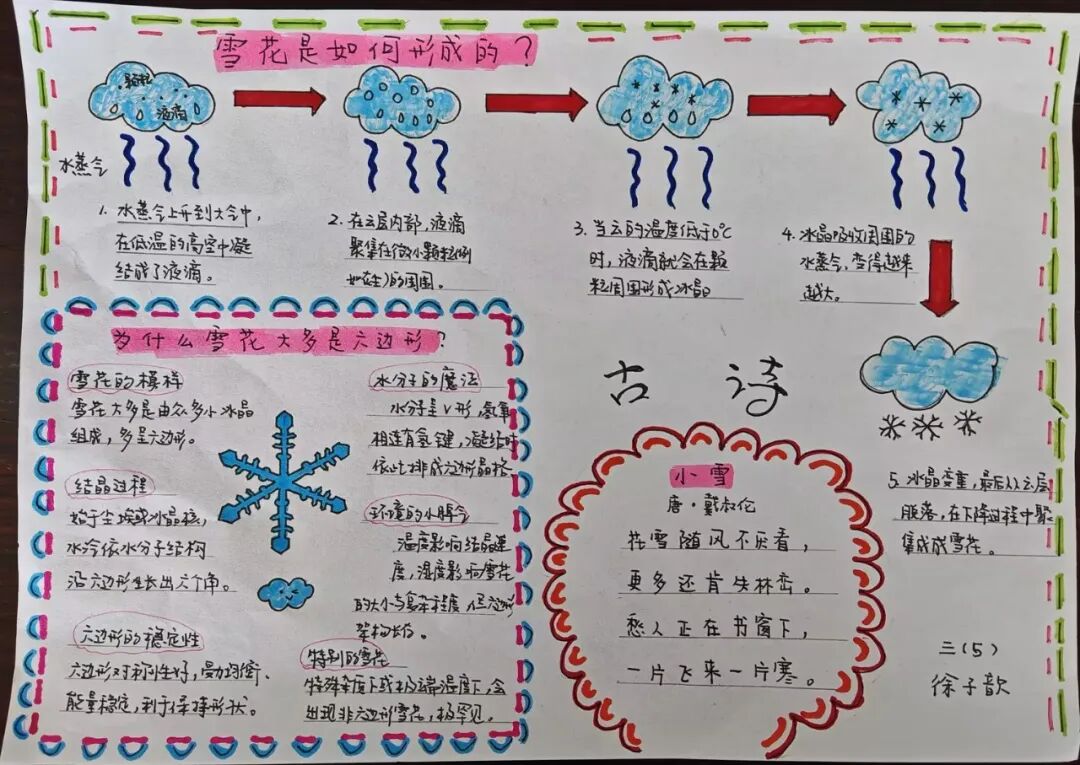 雪花是如何形成的？
颗粒
液滴
水蒸气
1. 水蒸气上升到大气中，
在低温的高空中凝
结成了液滴。
2. 在云层内部，液滴
聚集在微小颗粒(例
如灰尘)的周围。
3. 当云的温度低于0℃
时，液滴就会在颗
粒周围形成冰晶
4. 水晶吸收周围的
水蒸气，变得越来
越大。
5. 冰晶变重，最后从云层
脱落，在下降过程中聚
集成成雪花。
为什么雪花大多是六边形？
雪花的模样
雪花大多是由众多小冰晶
组成，多呈六边形。
结晶过程
始于尘埃或冰晶核，
水冷依水分子结构
沿六边形生长出六个角。
六边形的稳定性
六边形对称性好，受力均衡、
能量稳定，利于保持形状。
水分子的魔法
水分子呈V形，氢氧
相连有氢键，凝结时
依此排成六边形晶格
环境的小脾气
温度影响结晶速
度，湿度影响雪花
的大小与复杂程度，但六边形
架构长存。
特别的雪花
特殊杂质下或极端湿度下，会
出现非六边形雪花，极罕见。
古诗
小雪
唐·戴叔伦
花雪随风不厌看，
更多还肯失林峦。
愁人正在书窗下，
一片飞来一片寒。
三(5)
徐子歆